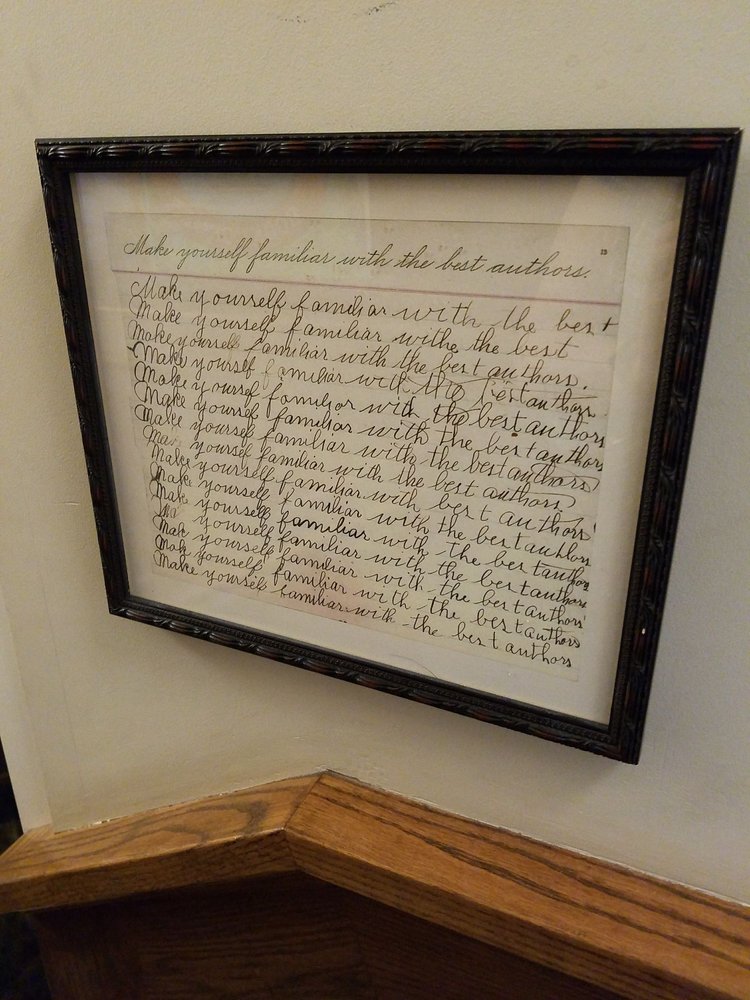 Make yourself familiar with the best authors.
Make yourself familiar with the best
Make yourself familiar withe the best
Make yourself familiar with the best authors.
Make yourself familiar with the best authors.
Make yoursef familiar with the best authors
Make yourself familiar with the best authors
Make yourself familiar with the best authors
Make yourself familiar with the best authors
Make yourself familiar with best authors
Make yourself familiar with the best authors
Make yourself familiar with the best authors
Ma yourself familiar with the best authors
Make yourself familiar with the best authors
Make yourself familiar with the best authors
Make yourself familiar with the best authors